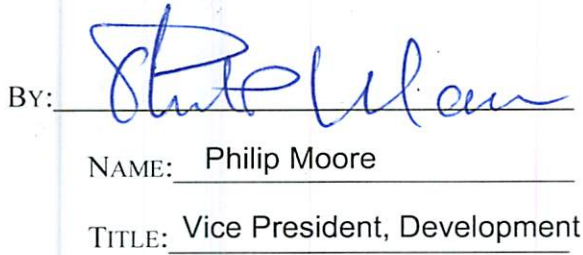 BY:
NAME: Philip Moore
TITLE: Vice President, Development